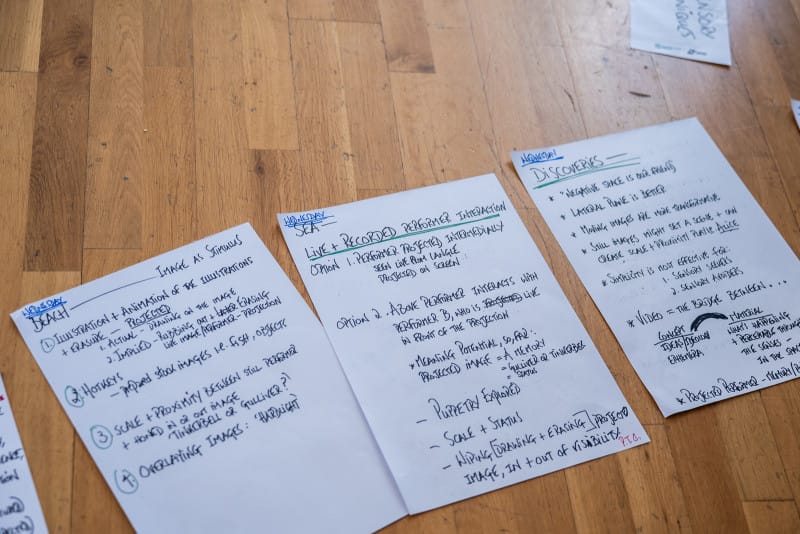 WEDNESDAY
BEACH
IMAGE AS STIMULUS
① ILLUSTRATION + ANIMATION OF THE ILLUSTRATIONS
+ ERASURE - PROJECTED
1. ACTUAL - DRAWING ON THE IMAGE
2. IMPLIED - RUBBING OUT + UNDER ERASING
LIVE IMAGE/PERFORMER - PROJECTION
② HOTKEYS
- PREPARED STOCK IMAGES i.e. FISH, OBJECTS
③ SCALE + PROXIMITY BETWEEN STILL PERFORMER
+ HONED IN OR OUT IMAGE
TINKERBELL OR GULLIVER?
④ OVERLAYING IMAGES:
WEDNESDAY
SEA -
LIVE + RECORDED PERFORMER INTERACTION
OPTION 1. PERFORMER PROJECTED INTERMEDIALLY
SEEN LIVE FROM 1 ANGLE
PROJECTED ON SCREEN
OPTION 2. ABOVE PERFORMER INTERACTS WITH
PERFORMER B, WHO IS LIVE
IN FRONT OF THE PROJECTION
* MEANING POTENTIAL, SO FAR:
PROJECTED IMAGE = A MEMORY
= GULLIVER OR TINKERBELL
STATUS
- PUPPETRY EXPLORED
- SCALE + STATUS
- WIPING [DRAWING + ERASING] PROJECTED
IMAGE, IN + OUT OF VISIBILITY
P.T.O.
WEDNESDAY
DISCOVERIES -
* NEGATIVE SPACE IS OUR FRIEND
* LATERAL PLANE IS BETTER
* MOVING IMAGES ARE MORE TRANSFORMATIVE
* STILL IMAGES MIGHT SET A SCENE + CAN
CREATE SCALE + PROXIMITY
* SUBTLETY IS NOT EFFECTIVE FOR:
1. SENSORY SEEKERS
2. SENSORY AVOIDERS
* VIDEO = THE BRIDGE BETWEEN...
CONCEPT
IDEAS/
EPHEMERA
MATERIAL
WHAT'S HAPPENING
+ PERCEIVABLE THROUGH
THE SENSES -
IN THE
* PROJECTED PERFORMER - MEMORY/